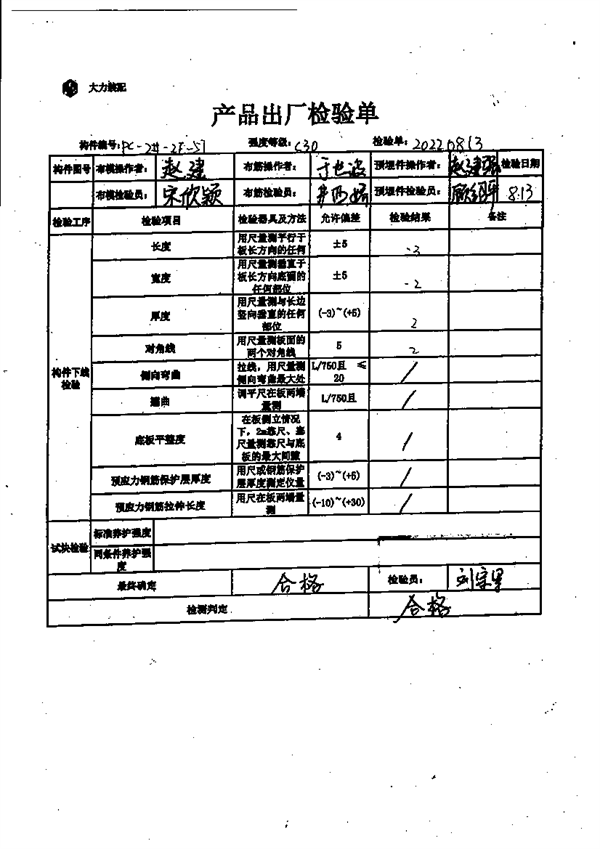 大力装配
产品出厂检验单
构件编号: PC-2#-2F-51 强度等级: C30 检验单: 20220813
构件图号 布模操作者: 赵建 布筋操作者: 预埋件操作者: 赵建强 检验日期
布模检验员: 宋欣颖 布筋检验员: 预埋件检验员: 8.13
检验工序 检验项目 检验器具及方法 允许偏差 检验结果 备注
构件下线检验
长度 用尺量测平行于板长方向的任何 ±5 -3
宽度 用尺量测垂直于板长方向底面的任何部位 ±5 -2
厚度 用尺量测与长边竖向垂直的任何部位 (-3)~(+5) 2
对角线 用尺量测板面的两个对角线 5 2
侧向弯曲 拉线，用尺量测侧向弯曲最大处 L/750且 ≤20 /
翘曲 调平尺在板两端量测 L/750且 /
底板平整度 在板侧立情况下，2m靠尺、塞尺量测靠尺与底板的最大间隙 4 /
预应力钢筋保护层厚度 用尺或钢筋保护层厚度测定仪量 (-3)~(+5) /
预应力钢筋拉伸长度 用尺在板两端量测 (-10)~(+30) /
试块检验 标准养护强度
同条件养护强度
最终确定 合格 检验员:
检测判定 合格